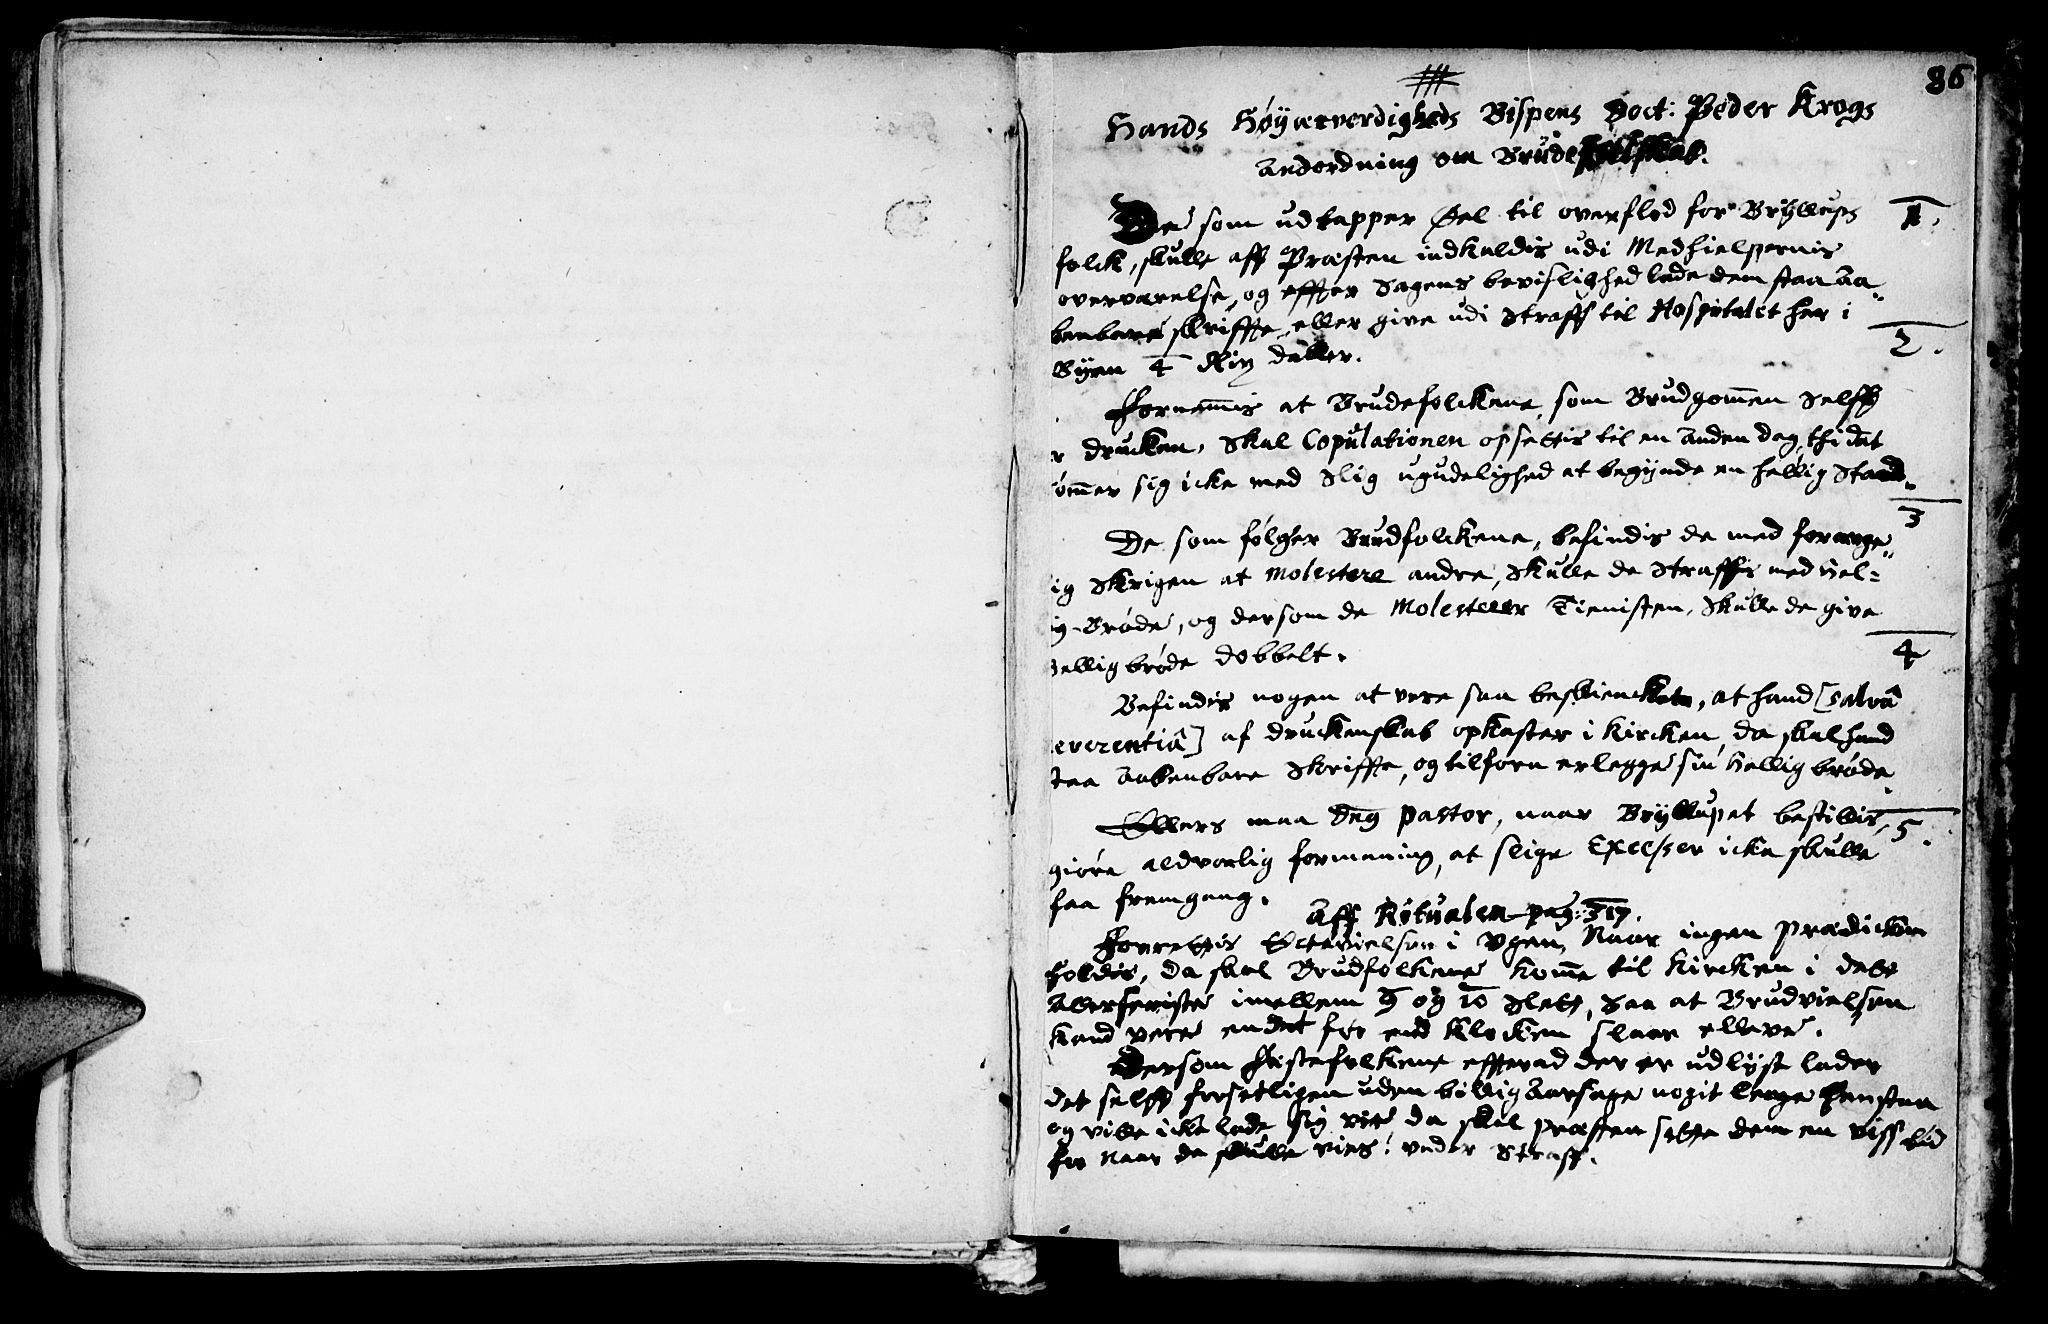 86
Hands Høyærverdigheds Bispens Doct: Peder Krogs
Andordning om Brudeselskab.
De som udtapper Øel til overflod for Bryllups 1.
folck, skulle aff Præsten indkaldis udi Medhielpernis
overværelse, og effter Sagens bevislighed lade dem staa Aa„
benbare skriffte, eller give udi Straff til Hospitalet her i
Byen 4 Rix daller. 2.
Fornemis at Brudefolckene, som Brudgomen Selff
r drucken, Skal Copulationen opsettis til en Anden dag, thi det
ømmer sig icke med Slig ugudelighed at begynde en hellig Stand.
3
De som følger Brudfolckene, befindis de med forarge„
ig Skrigen at molestere andre, Skulle de Straffis med Hel=
ig Brøde, og dersom de Molesterer Tienisten, Skulle de give
hellig brøde dobbelt. 4
Befindis nogen at vere saa beskiencket, at hand [salvâ
everentiâ] af druckenskab opkaster i Kircken, da skal hand
staa Aabenbare Skriffte, og tilforn erlegge sin Hellig brøde.
Ellers maa Pastor, naar Bryllupet bestillis, 5.
giøre aldvorlig formaning, at slige Excesser icke skulle
faa fremgang.
Aff Ritualen pag: 317.
Forrettis Ectevielsen i Ugen, Naar ingen prædicken
holdis, da skal Brudfolkene komme til Kircken i det
Allerseniste imellem 9 og 10 Slett, Saa at Brudvielsen
kand vere endet før end Klocken slaar elleve.
Dersom Festefolkene effterad der er udlyst lader
det selff forsetligen uden billig Aarsage nogit lenge henstaa
og ville icke lade sig vie da skal præsten sette dem en viss tid
for Naar de skulle vies: under Straff.